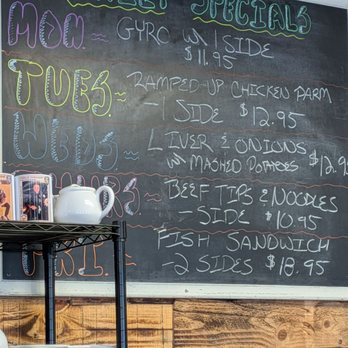 SPECIALS
MON. GYRO W/ 1 SIDE
$11.95
TUES. RAMPED-UP CHICKEN PARM
-1 SIDE $12.95
WEDS LIVER & ONIONS
W/ MASHED POTATOES $12.95
BEEF TIPS & NOODLES
- SIDE $10.95
FRIE. FISH SANDWICH
-2 SIDES $18.95